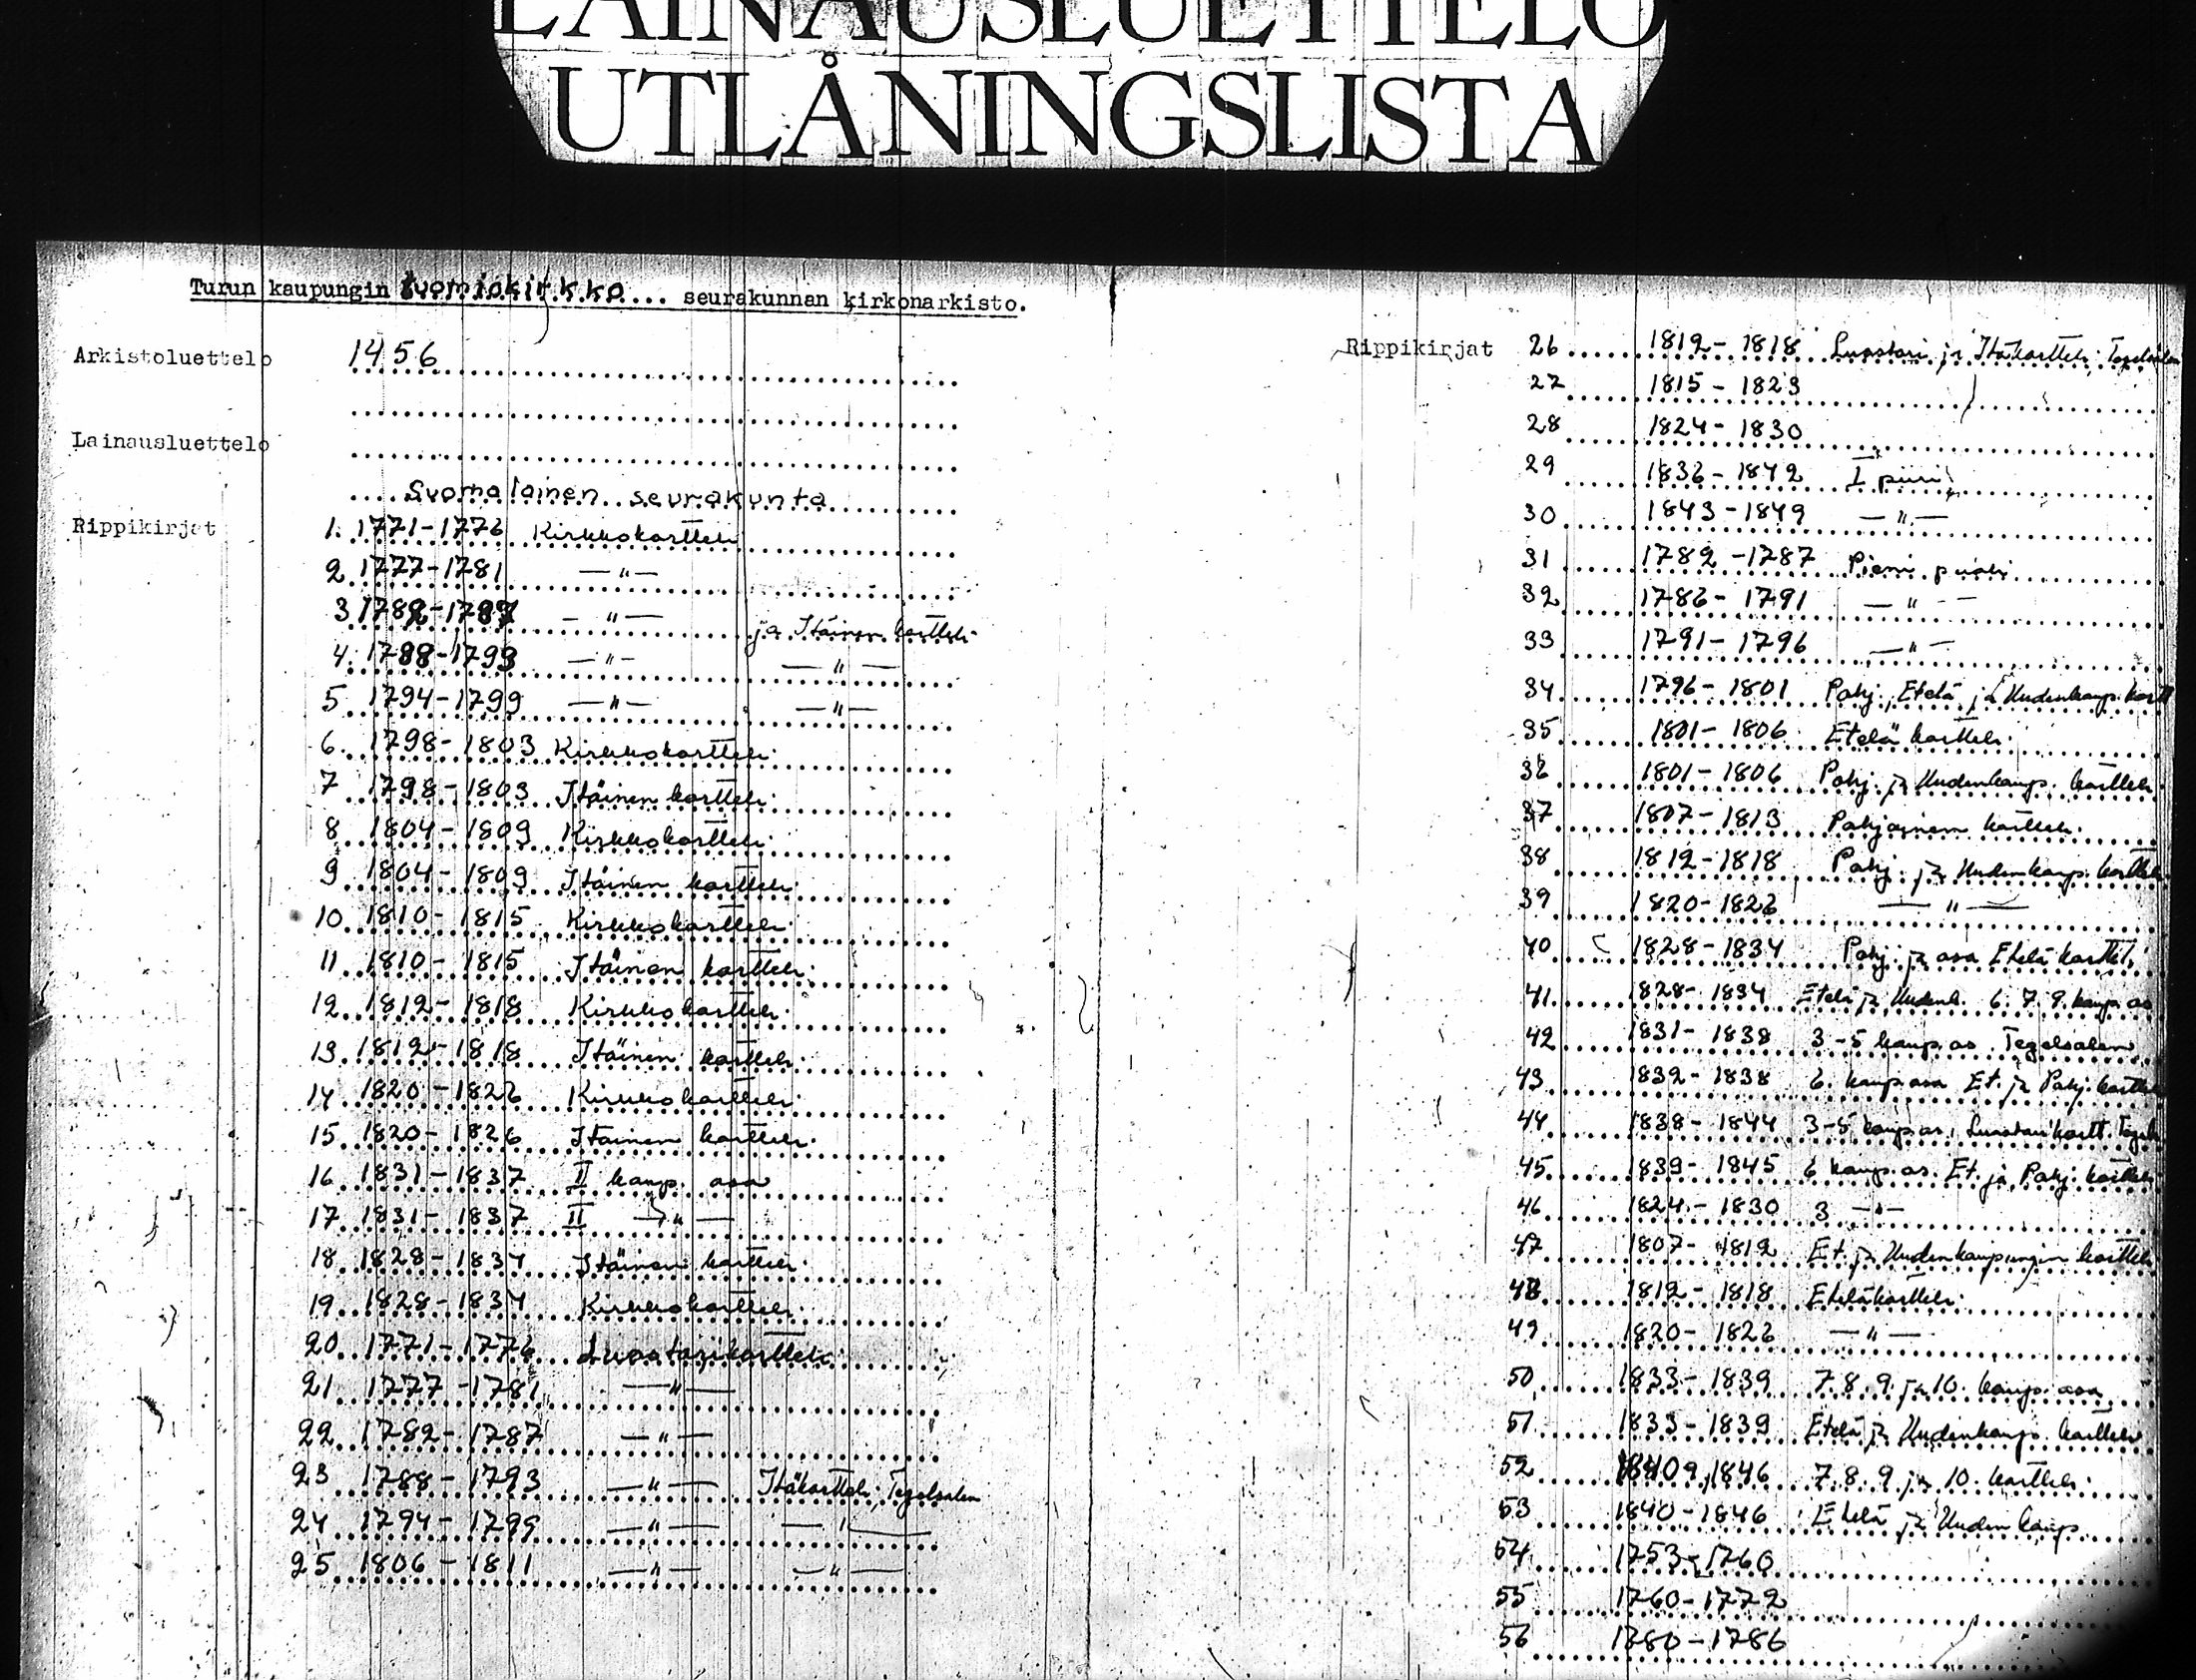 LAINAUSLUETTELO
UTLÅNINGSLISTA
Turun kaupungin tuomiokirkko.... seurakunnan kirkonarkisto.
Arkistoluettelo 1456
Lainausluettelo
Suomalainen seurakunta
Rippikirjat 1. 1771-1776 Kirkkokortteli
2. 1777-1781 —"—
3. 1782-1787 —"— ja Itäinen kortteli
4. 1788-1793 —"— —"—
5. 1794-1799 —"— —"—
6. 1798-1803 Kirkkokortteli
7. 1798-1803 Itäinen kortteli
8. 1804-1809 Kirkkokortteli
9. 1804-1809 Itäinen kortteli
10. 1810-1815 Kirkkokortteli
11. 1810-1815 Itäinen kortteli
12. 1812-1818 Kirkkokortteli
13. 1812-1818 Itäinen kortteli
14. 1820-1826 Kirkkokortteli
15. 1820-1826 Itäinen kortteli
16. 1831-1837 II kaup. osa
17. 1831-1837 II —"—
18. 1828-1834 Itäinen kortteli
19. 1828-1834 Kirkkokortteli
20. 1771-1776 Luostarikortteli
21. 1777-1781 —"—
22. 1782-1787 —"—
23. 1788-1793 —"— Itäkortteli, Tegelsalen
24. 1794-1799 —"— —"—
25. 1806-1811 —"— —"—
Rippikirjat 26 1812-1818 Luostari ja Itäkortteli
27 1815-1823
28 1824-1830
29 1836-1842 I piiri
30 1843-1849 —"—
31 1782-1787 Pieni puoli
32 1786-1791 —"—
33 1791-1796 —"—
34 1796-1801 Pohj. Etelä ja Uudenkaup. kortt
35 1801-1806 Etelä kortteli
36 1801-1806 Pohj. ja Uudenkaup. kortteli
37 1807-1813 Pohjoinen kortteli
38 1812-1818 Pohj. ja Uudenkaup. kortteli
39 1820-1826 —"—
40 1828-1834 Pohj. ja osa Etelä korttel.
41. 1828-1834 Etelä ja Uudenk. 6. 7. 9. kaup. os
42 1831-1838 3-5 kaup. os. Tegelsalen
43 1832-1838 6. kaup. osa Et. ja Pohj. kortteli
44 1838-1844 3-5 kaup. os. Luostarikortt.
45 1839-1845 6 kaup. os. Et. ja Pohj. kortteli
46 1824-1830 3 —"—
47 1807-1812 Et. ja Uudenkaupungin kortteli
48 1812-1818 Eteläkortteli
49 1820-1826 —"—
50 1833-1839 7. 8. 9. ja 10. kaup. osa
51 1833-1839 Etelä ja Uudenkaup. kortteli
52 1846 7. 8. 9 ja 10. kortteli
53 1840-1846 Etelä ja Uuden kaup.
54 1753-1760
55 1760-1772
56 1780-1786